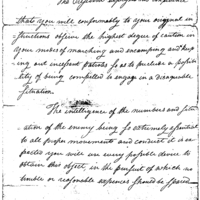 that you will conformably to your original in
structions observe the highest degree of caution in
your modes of marching and encamping and keep
ing out incessant patrols so as to preclude a possibi
lity of being compelled to engage in a disagreeable
situation.
The intelligence of the numbers and situ
ation of the enemy being so extremely essential
to all proper movements and conduct it is ex
pected you will use every possible device to
obtain this object, in the pursuit of which no
trouble or reasonable expences should be spared